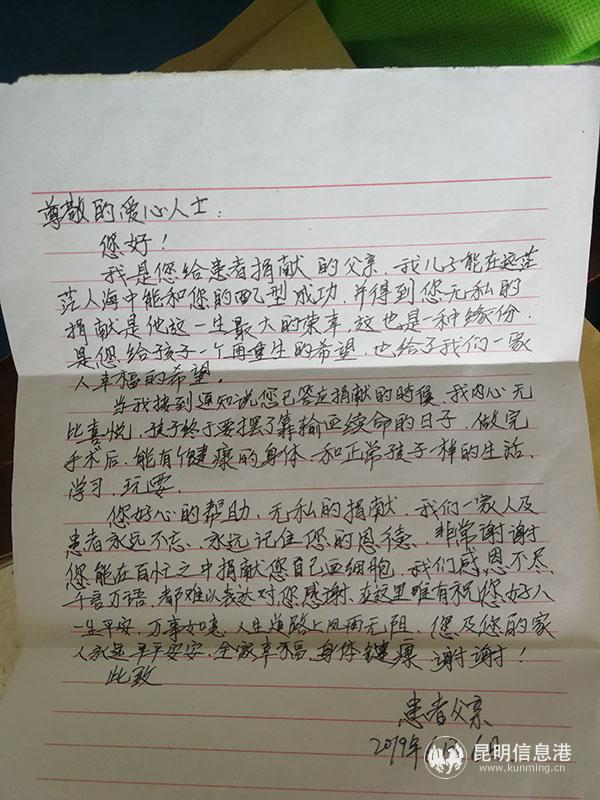 尊敬的爱心人士:
您好!
我是您给患者捐献的父亲,我儿子能在这茫
茫人海中能和您的配型成功,并得到您无私的
捐献是他这一生最大的荣幸,这也是一种缘份,
是您给孩子一个再重生的希望,也给了我们一家
人幸福的希望。
当我接到通知说您已答应捐献的时候,我内心无
比喜悦,孩子终于要摆了靠输血续命的日子,做完
手术后,能有个健康的身体,和正常孩子一样的生活、
学习、玩耍。
您好心的帮助、无私的捐献,我们一家人及
患者永远不忘、永远记住您的恩德,非常谢谢
您能在百忙之中捐献您自己血细胞,我们感恩不尽,
千言万语,都难以表达对您感谢,在这里唯有祝您好人
一生平安,万事如意,人生道路上风雨无阻,您及您的家
人永远平平安安,全家幸福,身体健康 谢谢!
此致
患者父亲
2019年
昆明信息港
www.kunming.cn